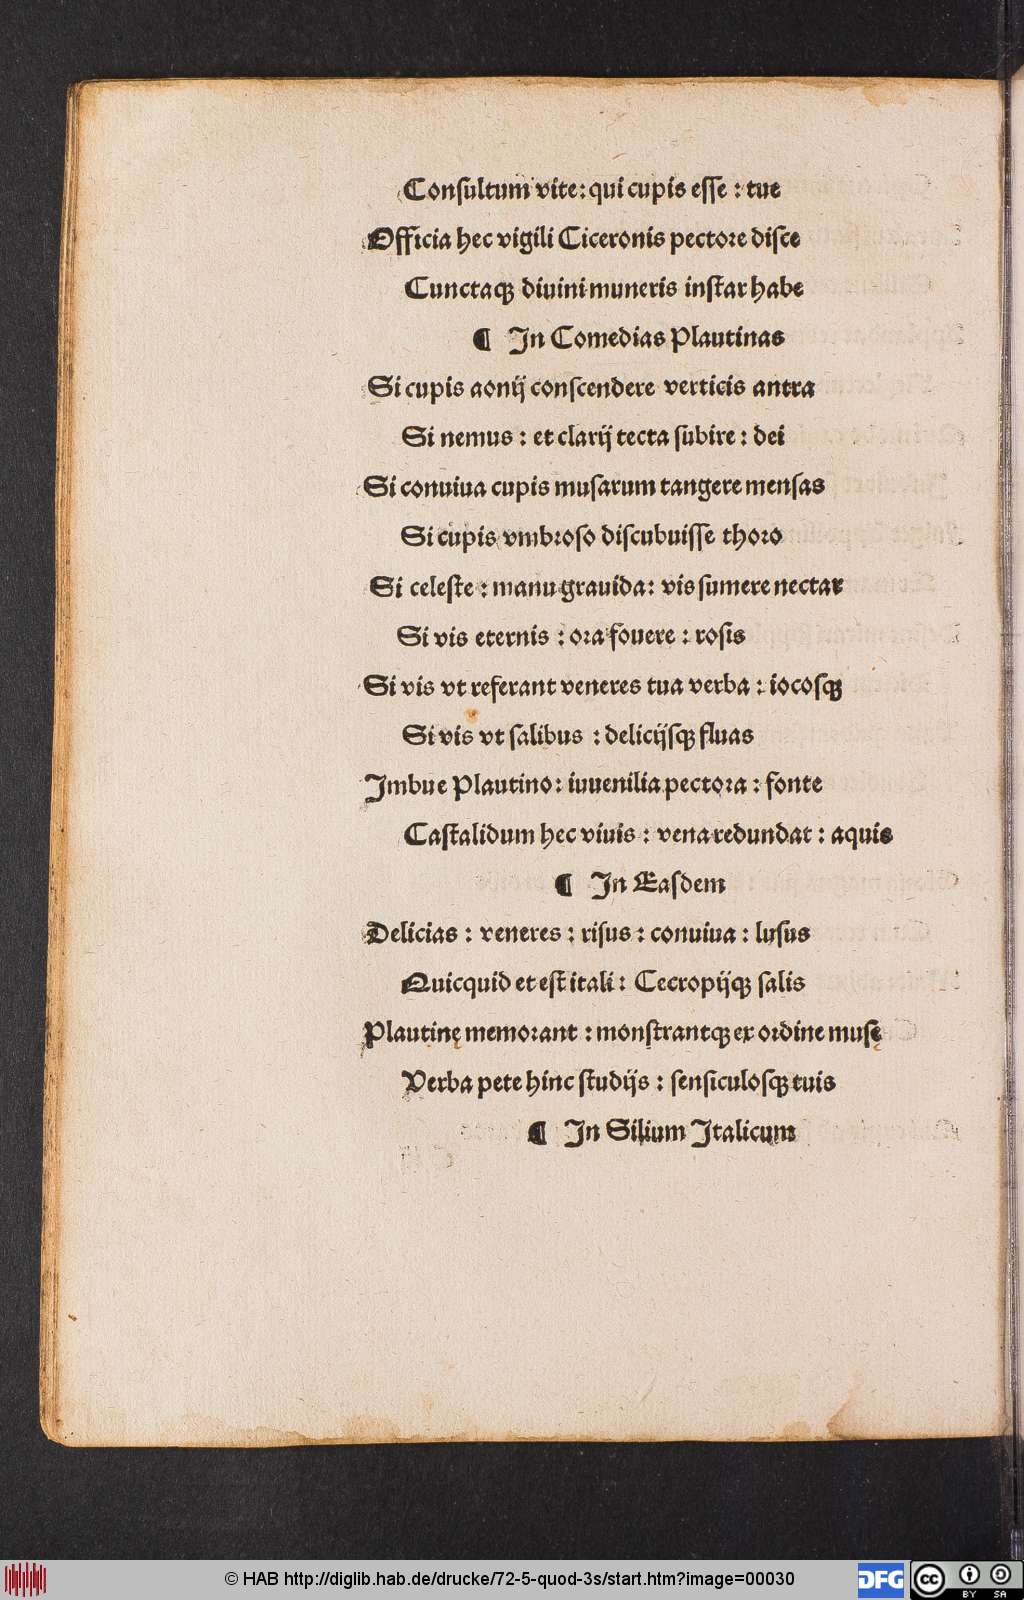 Conſultum vite: qui cupis eſſe : tue
Officia hec vigili Ciceronis pectoꝛe diſce
Cunctaqꝫ diuini muneris inſtar habe
¶ In Comedias Plautinas
Si cupis aonij conſcendere verticis antra
Si nemus : et clarij tecta ſubire : dei
Si conuiua cupis muſarum tangere menſas
Si cupis vmbꝛoſo diſcubuiſſe thoꝛo
Si celeſte : manu grauida: vis ſumere nectar
Si vis eternis : oꝛa fouere : roſis
Si vis vt referant veneres tua verba : iocoſqꝫ
Si vis vt ſalibus : delicijſqꝫ fluas
Imbue Plautino: iuuenilia pectoꝛa : fonte
Caſtalidum hec viuis : vena redundat : aquis
¶ In Eaſdem
Delicias : veneres : riſus : conuiua : luſus
Quicquid et eſt itali : Cecropijqꝫ ſalis
Plautinę memoꝛant : monſtrantqꝫ ex oꝛdine muſę
Verba pete hinc ſtudijs : ſenſiculoſqꝫ tuis
¶ In Silium Italicum
© HAB http://diglib.hab.de/drucke/72-5-quod-3s/start.htm?image=00030
DFG
cc BY SA